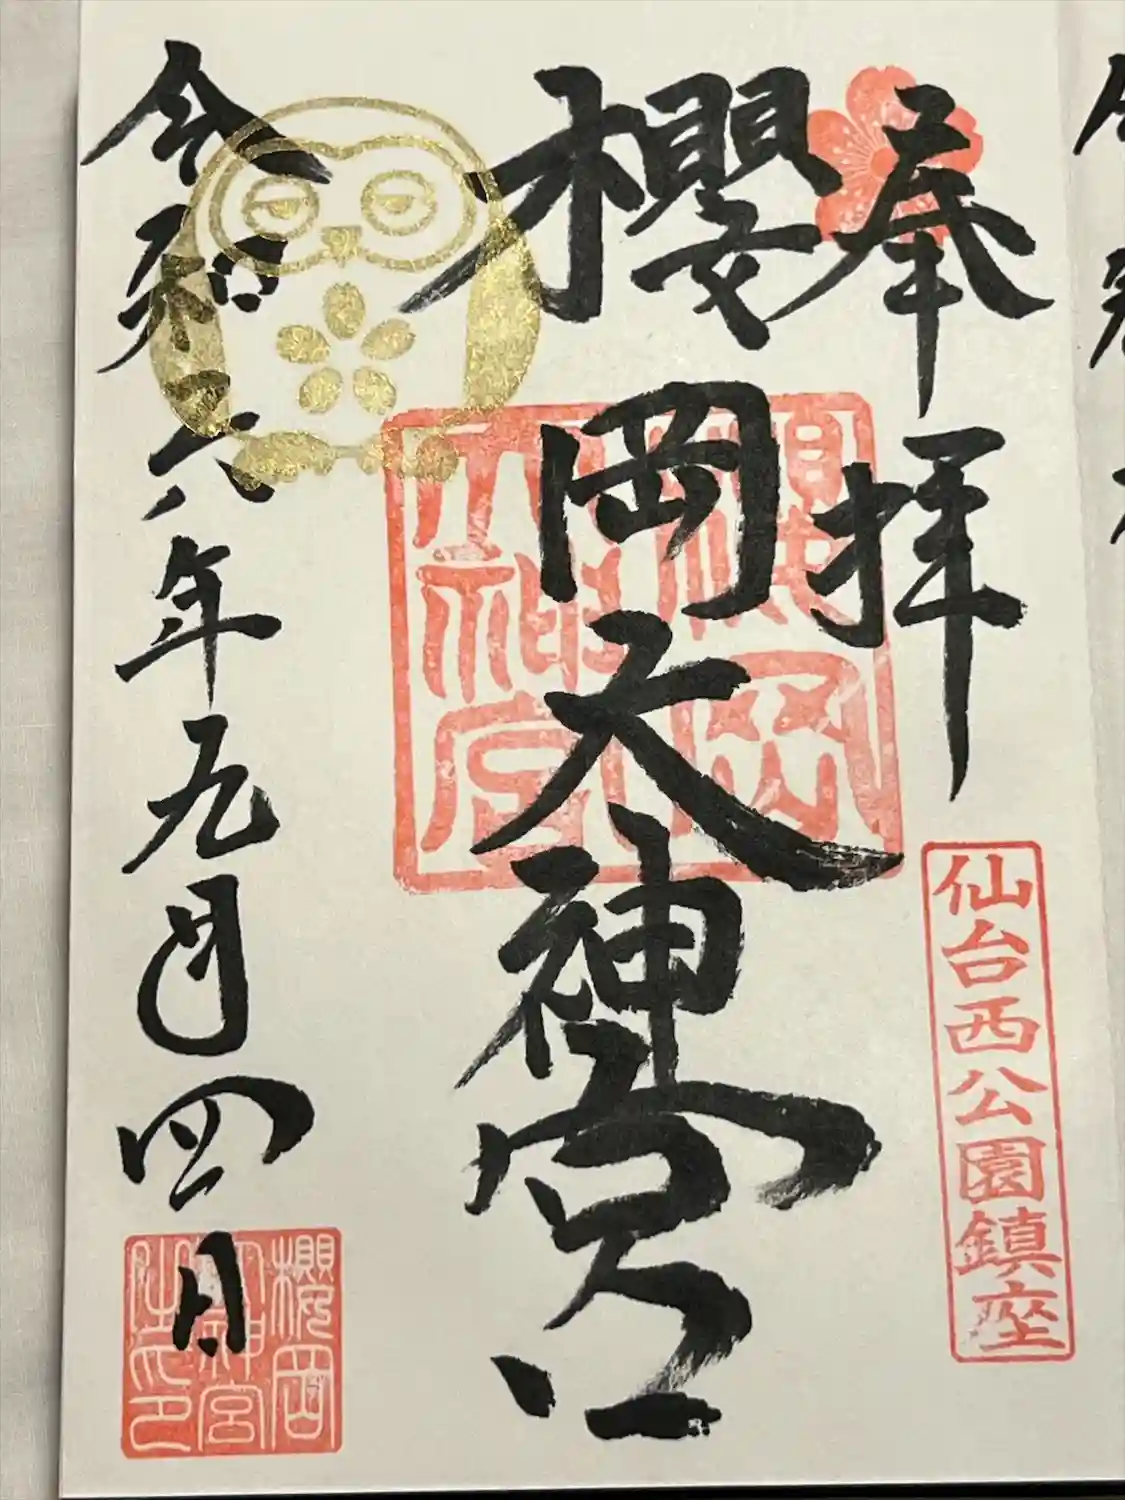 奉拝
仙台西公園鎮座
櫻岡大神宮
櫻岡
大神宮
令和六年九月四日
櫻岡
大神宮